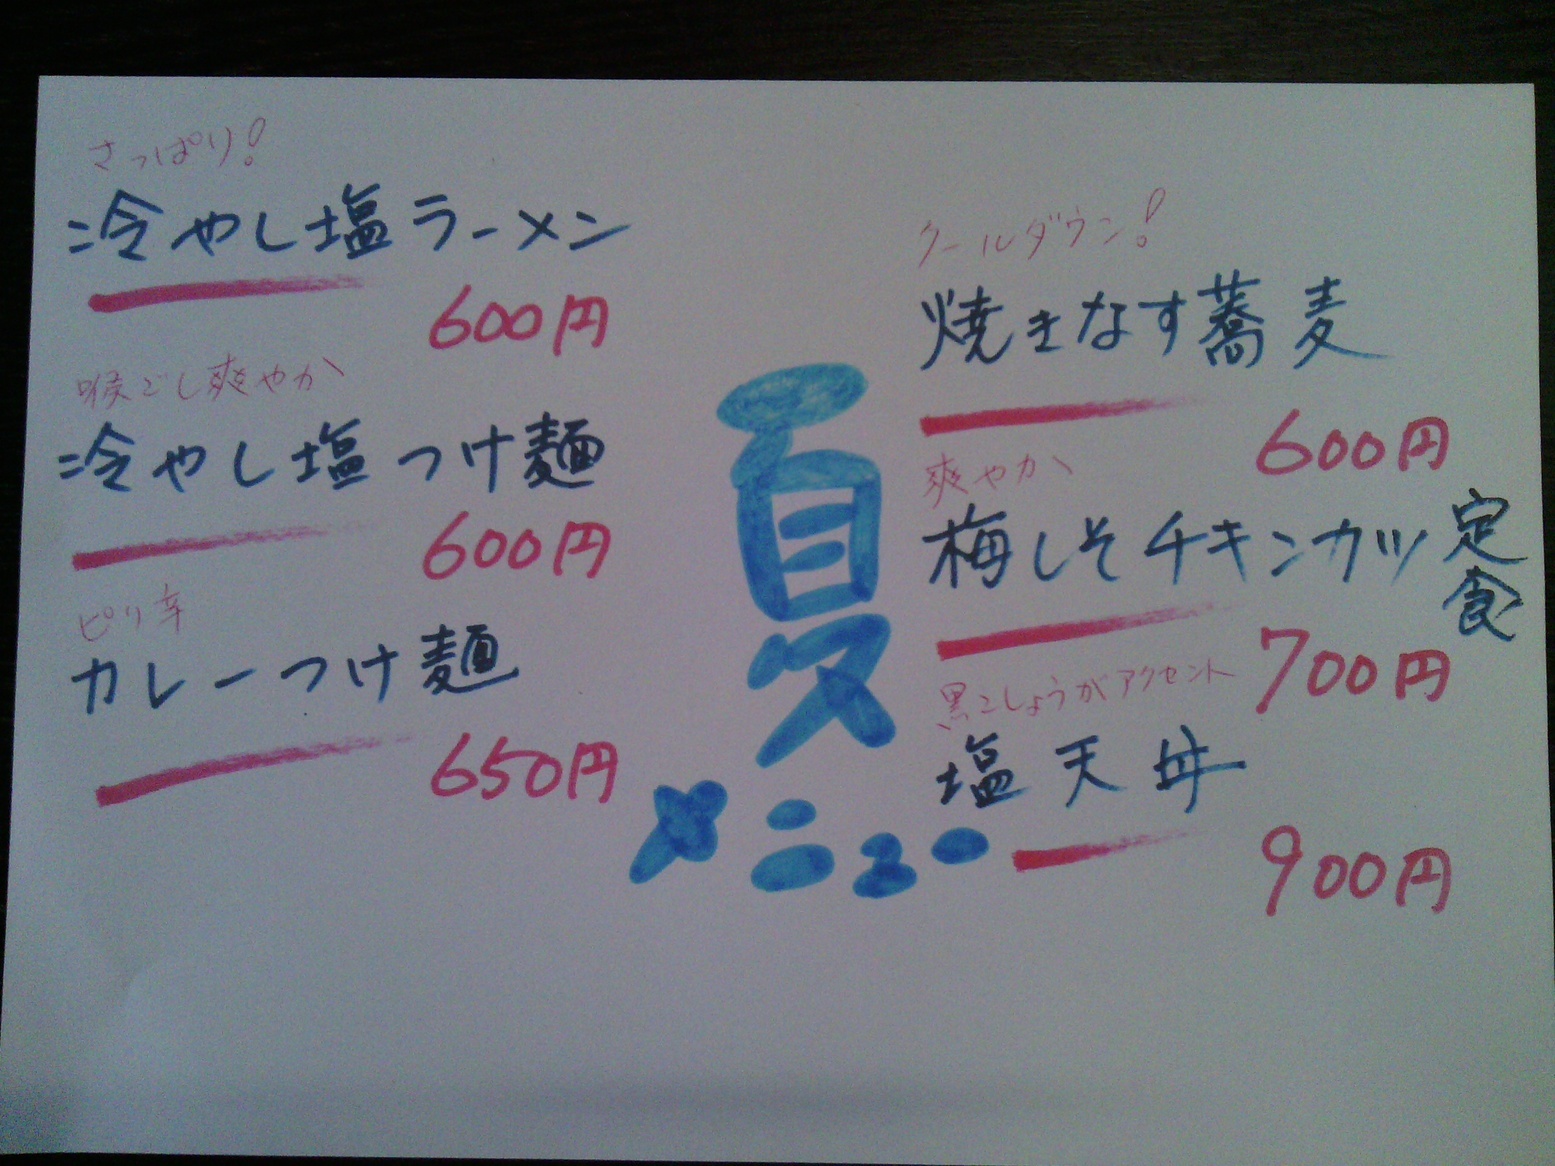 さっぱり!
冷やし塩ラーメン
600円
喉ごし爽やか
冷やし塩つけ麺
600円
ピリ辛
カレーつけ麺
650円
夏
メニュー
クールダウン!
焼きなす蕎麦
600円
爽やか
梅しそチキンカツ定食
700円
黒こしょうがアクセント
塩天丼
900円